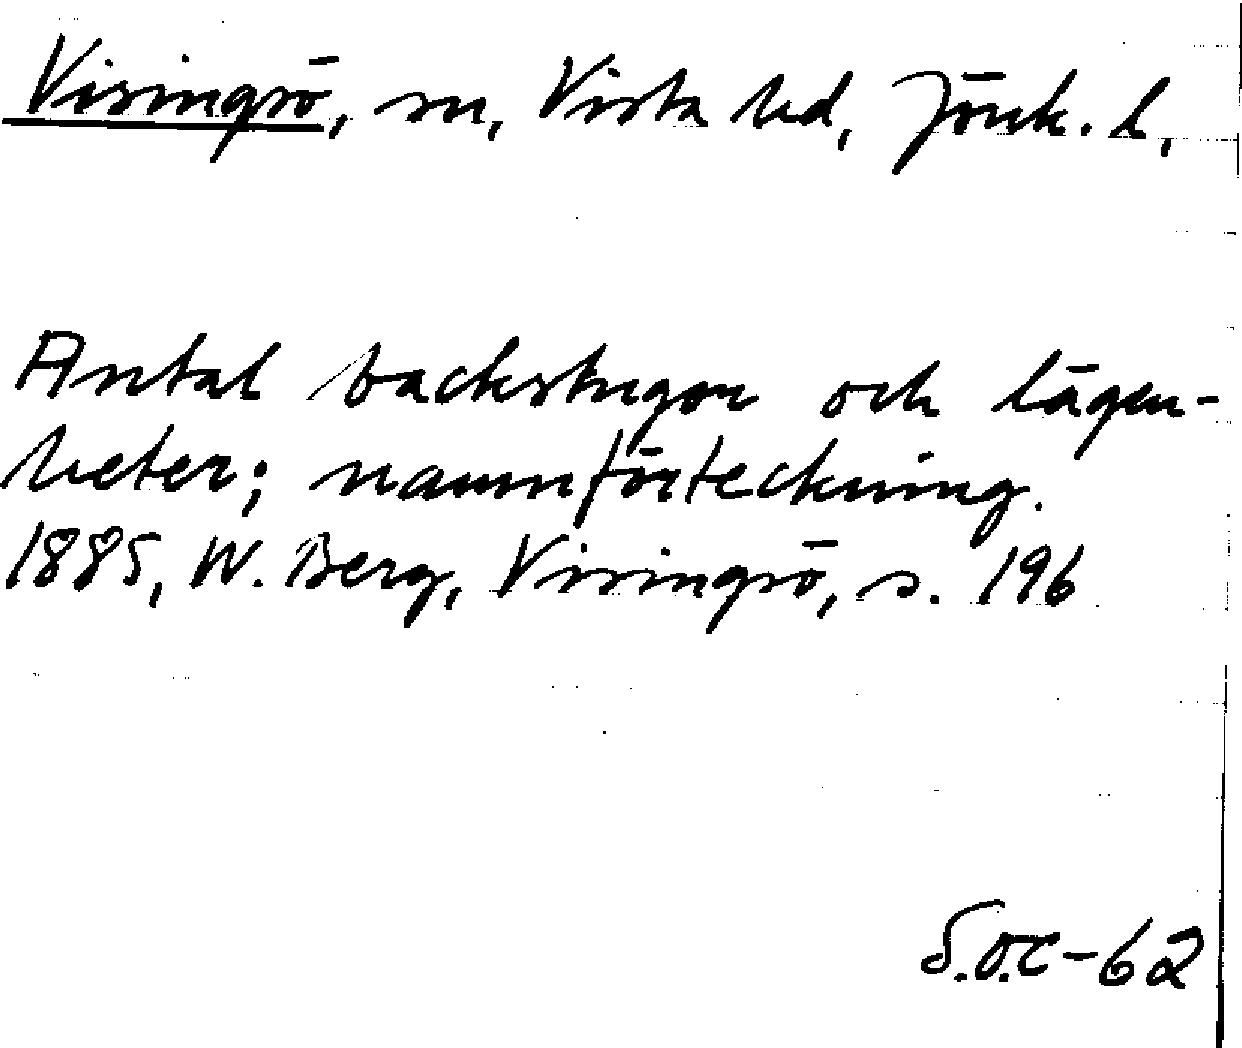 Visingsö, sn, Vista hd, Jönk. l,
Antal backstugor och lägen-
heter; namnförteckning.
1885, W. Berg, Visingsö, s. 196
S.O.C-62